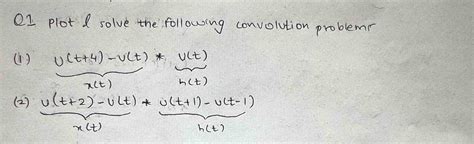 Q1 Plot & solve the following convolution problemr
(1) u(t+4)-u(t) * u(t)
x(t) h(t)
(2) u(t+2)-u(t) * u(t+1)-u(t-1)
x(t) h(t)